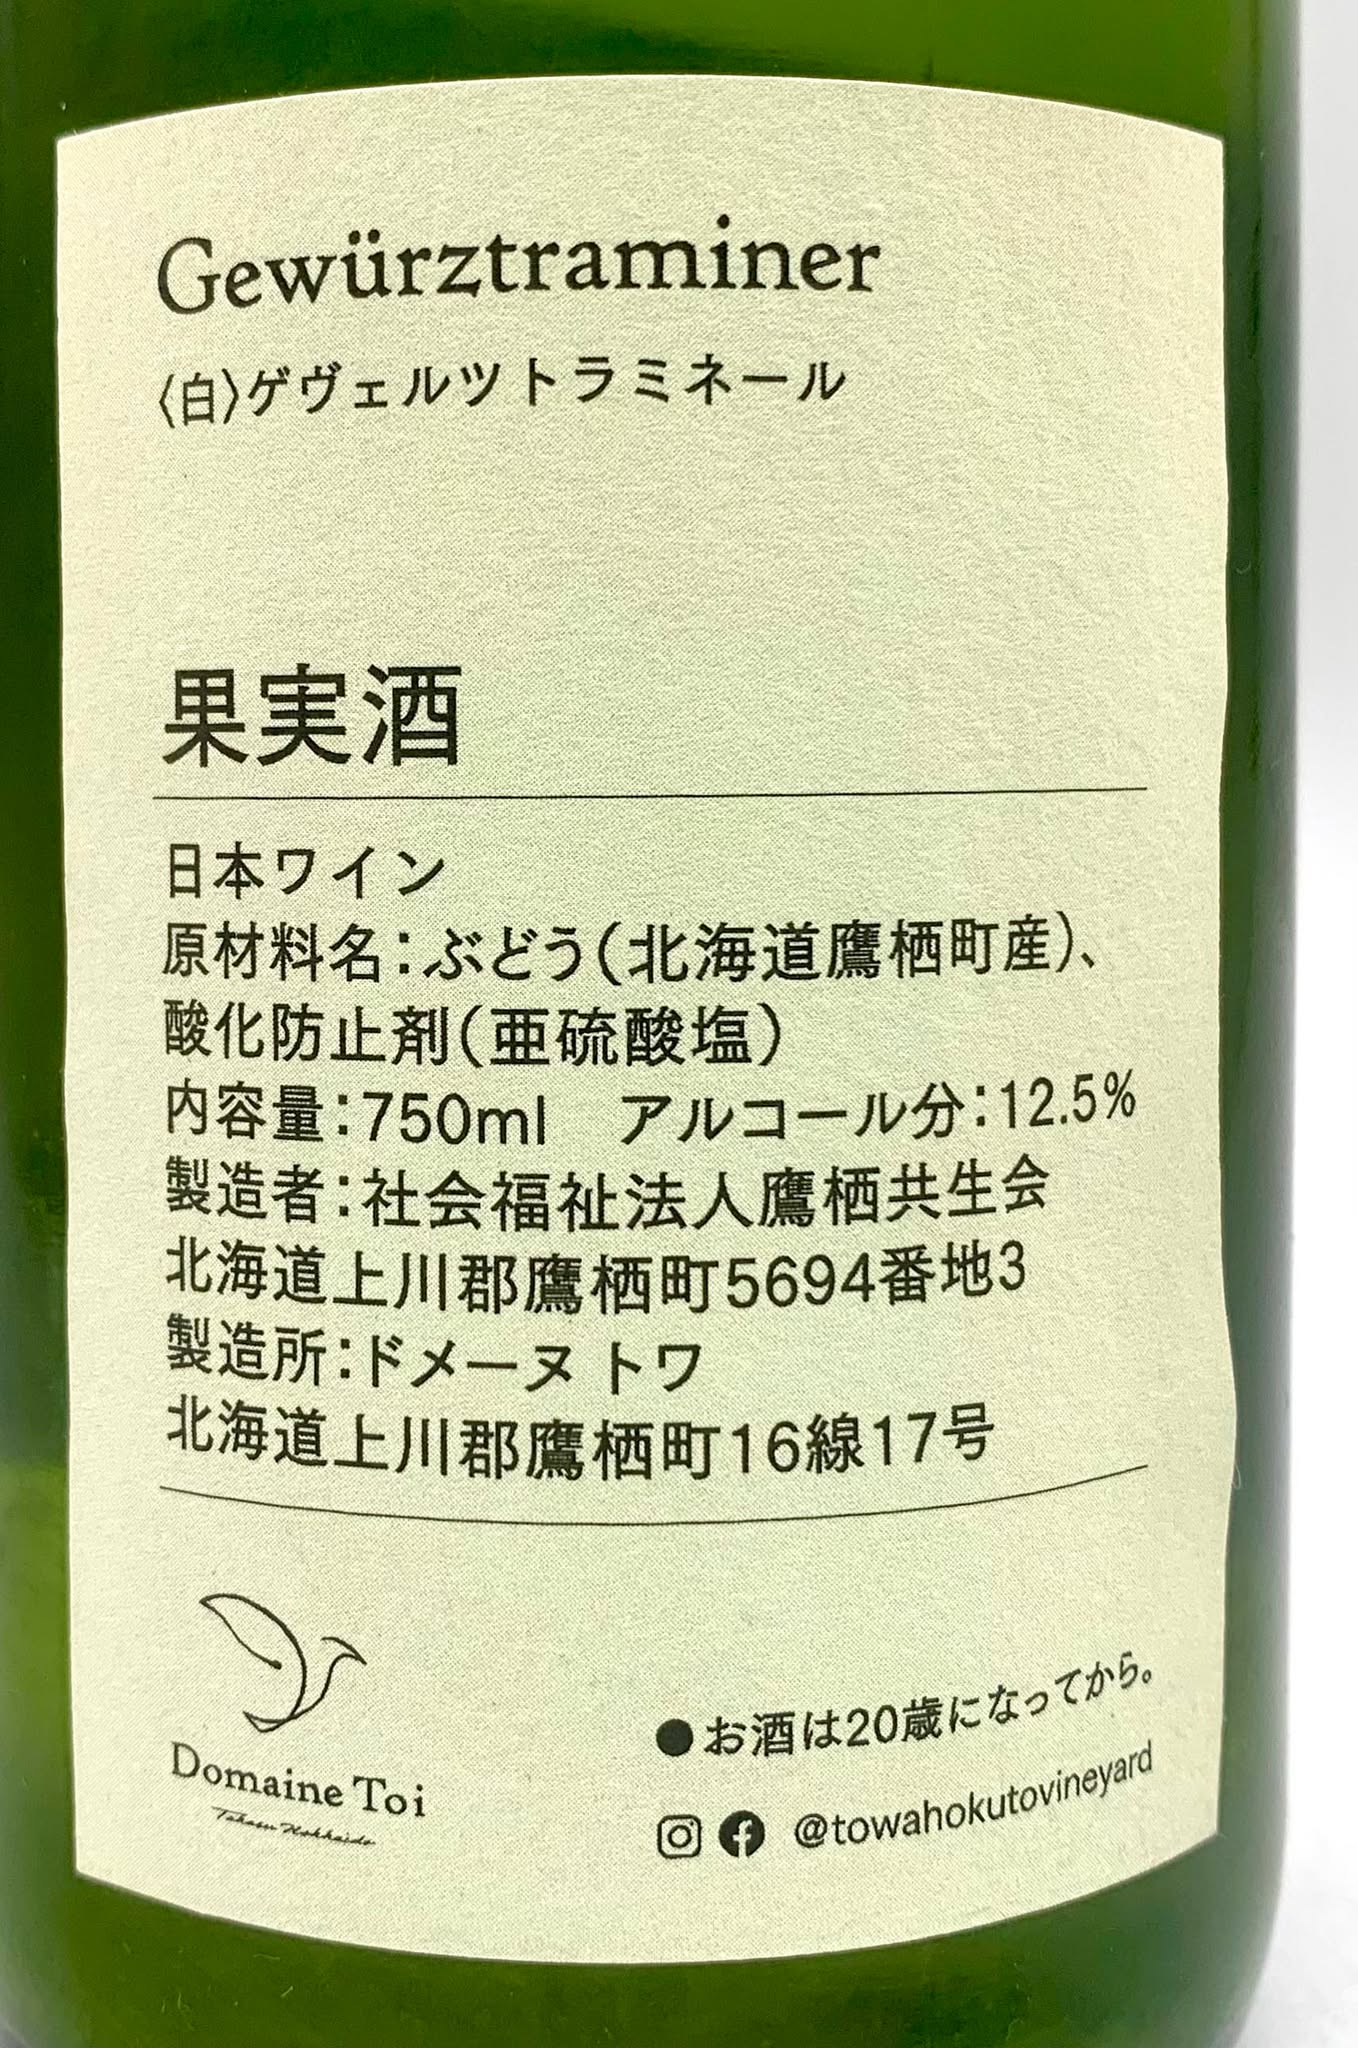 Gewürztraminer
〈白〉ゲヴェルツトラミネール
果実酒
日本ワイン
原材料名：ぶどう（北海道鷹栖町産）、
酸化防止剤（亜硫酸塩）
内容量：750ml　アルコール分：12.5%
製造者：社会福祉法人鷹栖共生会
北海道上川郡鷹栖町5694番地3
製造所：ドメーヌ トワ
北海道上川郡鷹栖町16線17号
Domaine Toi
Takasu Hokkaido
●お酒は20歳になってから。
@towahokutovineyard